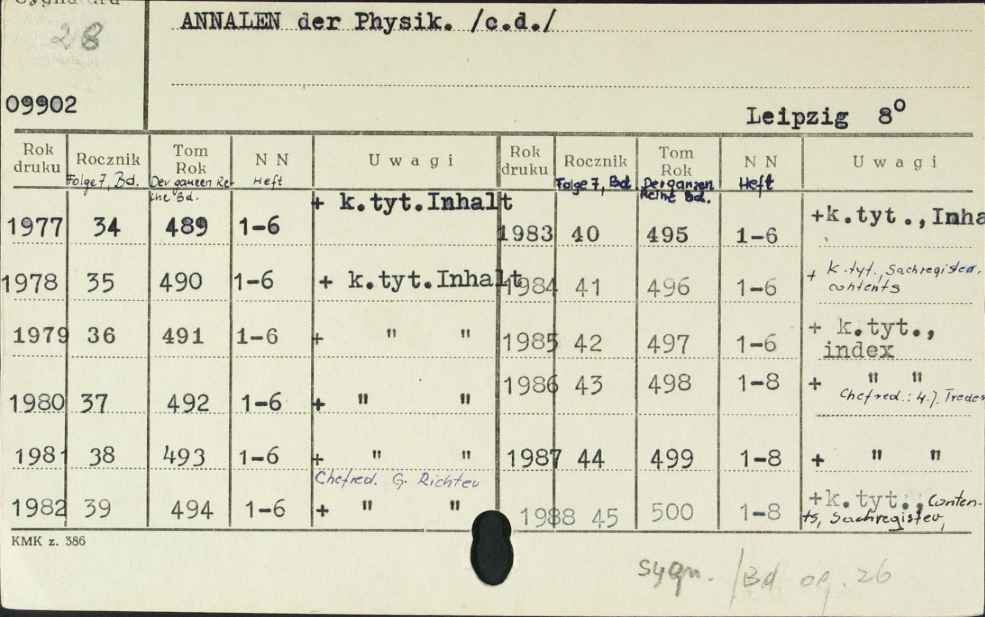 Sygnatura
28
ANNALEN der Physik. /c.d./
09902
Leipzig 8°
Rok druku Rocznik Tom Rok N N Uwagi Rok druku Rocznik Tom Rok N N Uwagi
Folge 7, Bd. Der ganzen Reihe Bd. Heft Folge 7, Bd. Der ganzen Reihe Bd. Heft
1977 34 489 1-6 + k.tyt.Inhalt 1983 40 495 1-6 +k.tyt.,Inha
1978 35 490 1-6 + k.tyt.Inhalt 1984 41 496 1-6 + k.tyt., Sachregister, contents
1979 36 491 1-6 + " " 1985 42 497 1-6 + k.tyt., index
1980 37 492 1-6 + " " 1986 43 498 1-8 + " " Chefred.: H.J. Treder
1981 38 493 1-6 + " " 1987 44 499 1-8 + " "
Chefred. G. Richter
1982 39 494 1-6 + " " 1988 45 500 1-8 +k.tyt., Contents, Sachregister,
KMK z. 386
sygn. /Bd og. 26